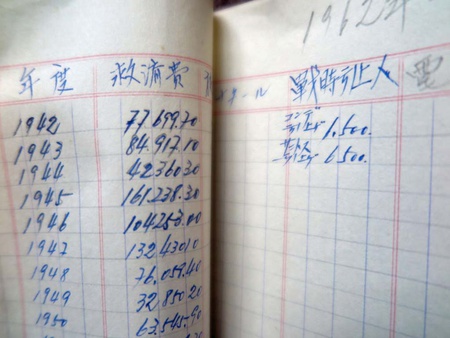 年度 救済費
1942 77,699.70
1943 84,917.10
1944 42360.30
1945 161,238.30
1946 104253.00
1947 132,430.10
1948 76,059.40
1949 32,850.20
1950 63,545.90
1962年
戦時引上人 電
1,500.
6500.